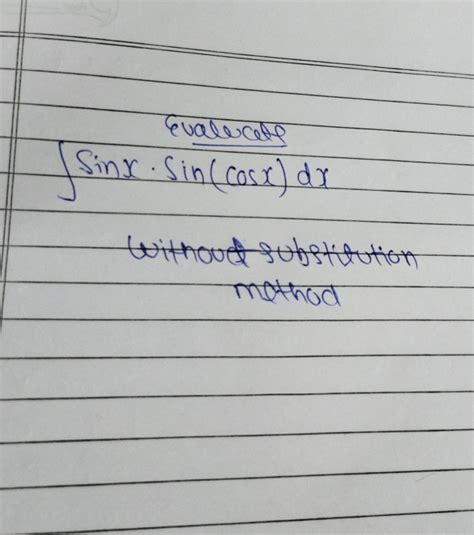 Evaluate
∫ Sinx · Sin(cosx) dx
without substitution
method